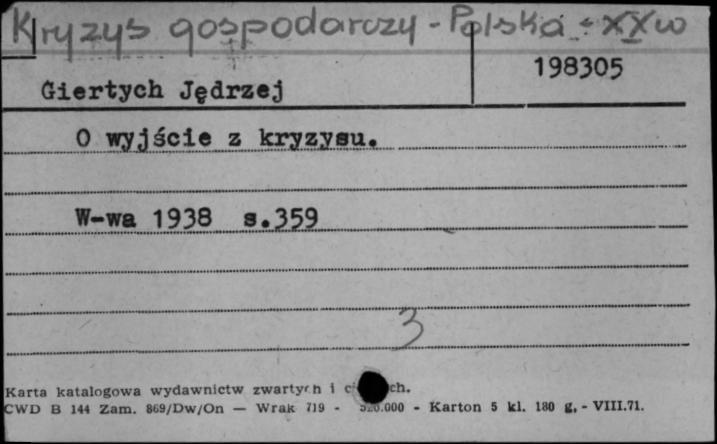 Kryzys gospodarczy - Polska - XX w
198305
Giertych Jędrzej
O wyjście z kryzysu.
W-wa 1938 s.359
3
Karta katalogowa wydawnictw zwartych i ch.
CWD B 144 Zam. 869/Dw/On — Wrak 719 - .000 - Karton 5 kl. 180 g, - VIII.71.